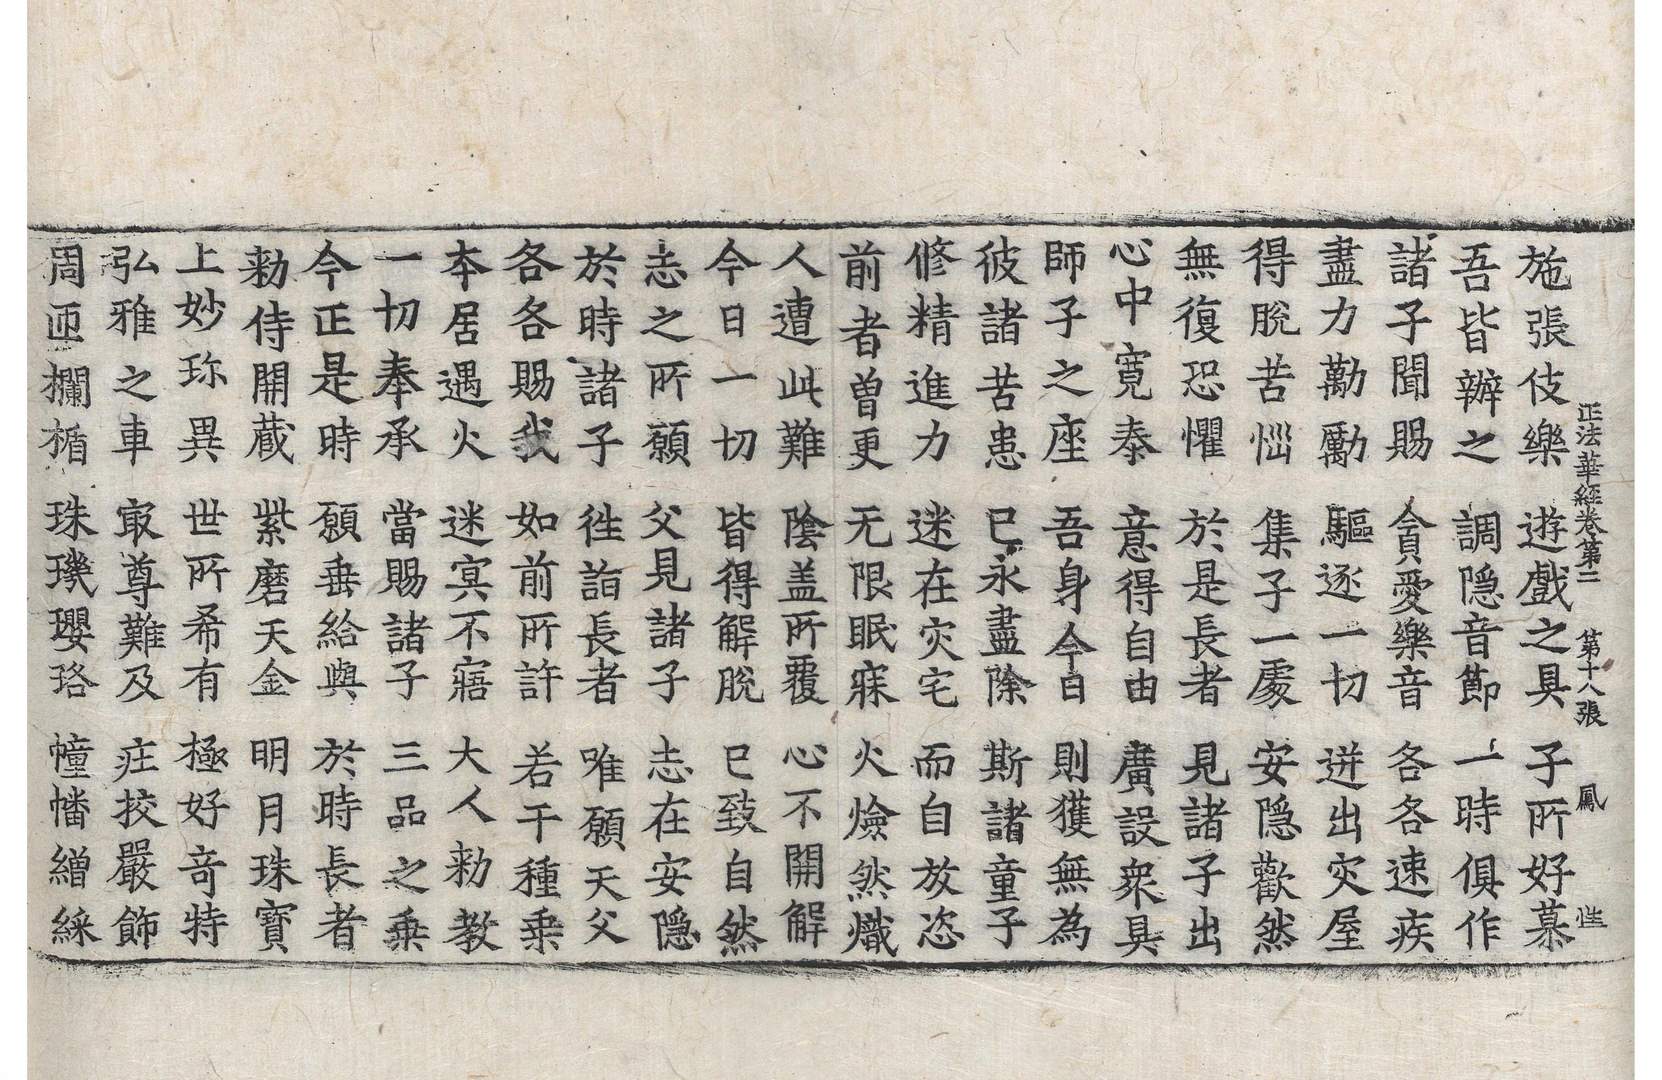 正法華經卷第二 第十八張 鳳 性
施張伎樂 遊戲之具 子所好慕
吾皆辦之 調隱音節 一時俱作
諸子聞賜 貪愛樂音 各各速疾
盡力勸勵 驅逐一切 迸出灾屋
得脫苦惱 集子一處 安隱歡然
無復恐懼 於是長者 見諸子出
心中寬泰 意得自由 廣設衆具
師子之座 吾身今日 則獲無為
彼諸苦患 已永盡除 斯諸童子
修精進力 迷在灾宅 而自放恣
前者曽更 无限眠寐 火燄然熾
人遭此難 陰盖所覆 心不開解
今日一切 皆得解脫 已致自然
志之所願 父見諸子 志在安隱
於時諸子 往詣長者 唯願天父
各各賜我 如前所許 若干種乗
本居遇火 迷㝠不寤 大人勑教
一切奉承 當賜諸子 三品之乗
今正是時 願垂給與 於時長者
勑侍開藏 紫磨天金 明月珠寶
上妙珎異 世所希有 極好竒特
弘雅之車 㝡尊難及 疘挍嚴飾
周迊欄楯 珠璣瓔珞 幢幡繒綵